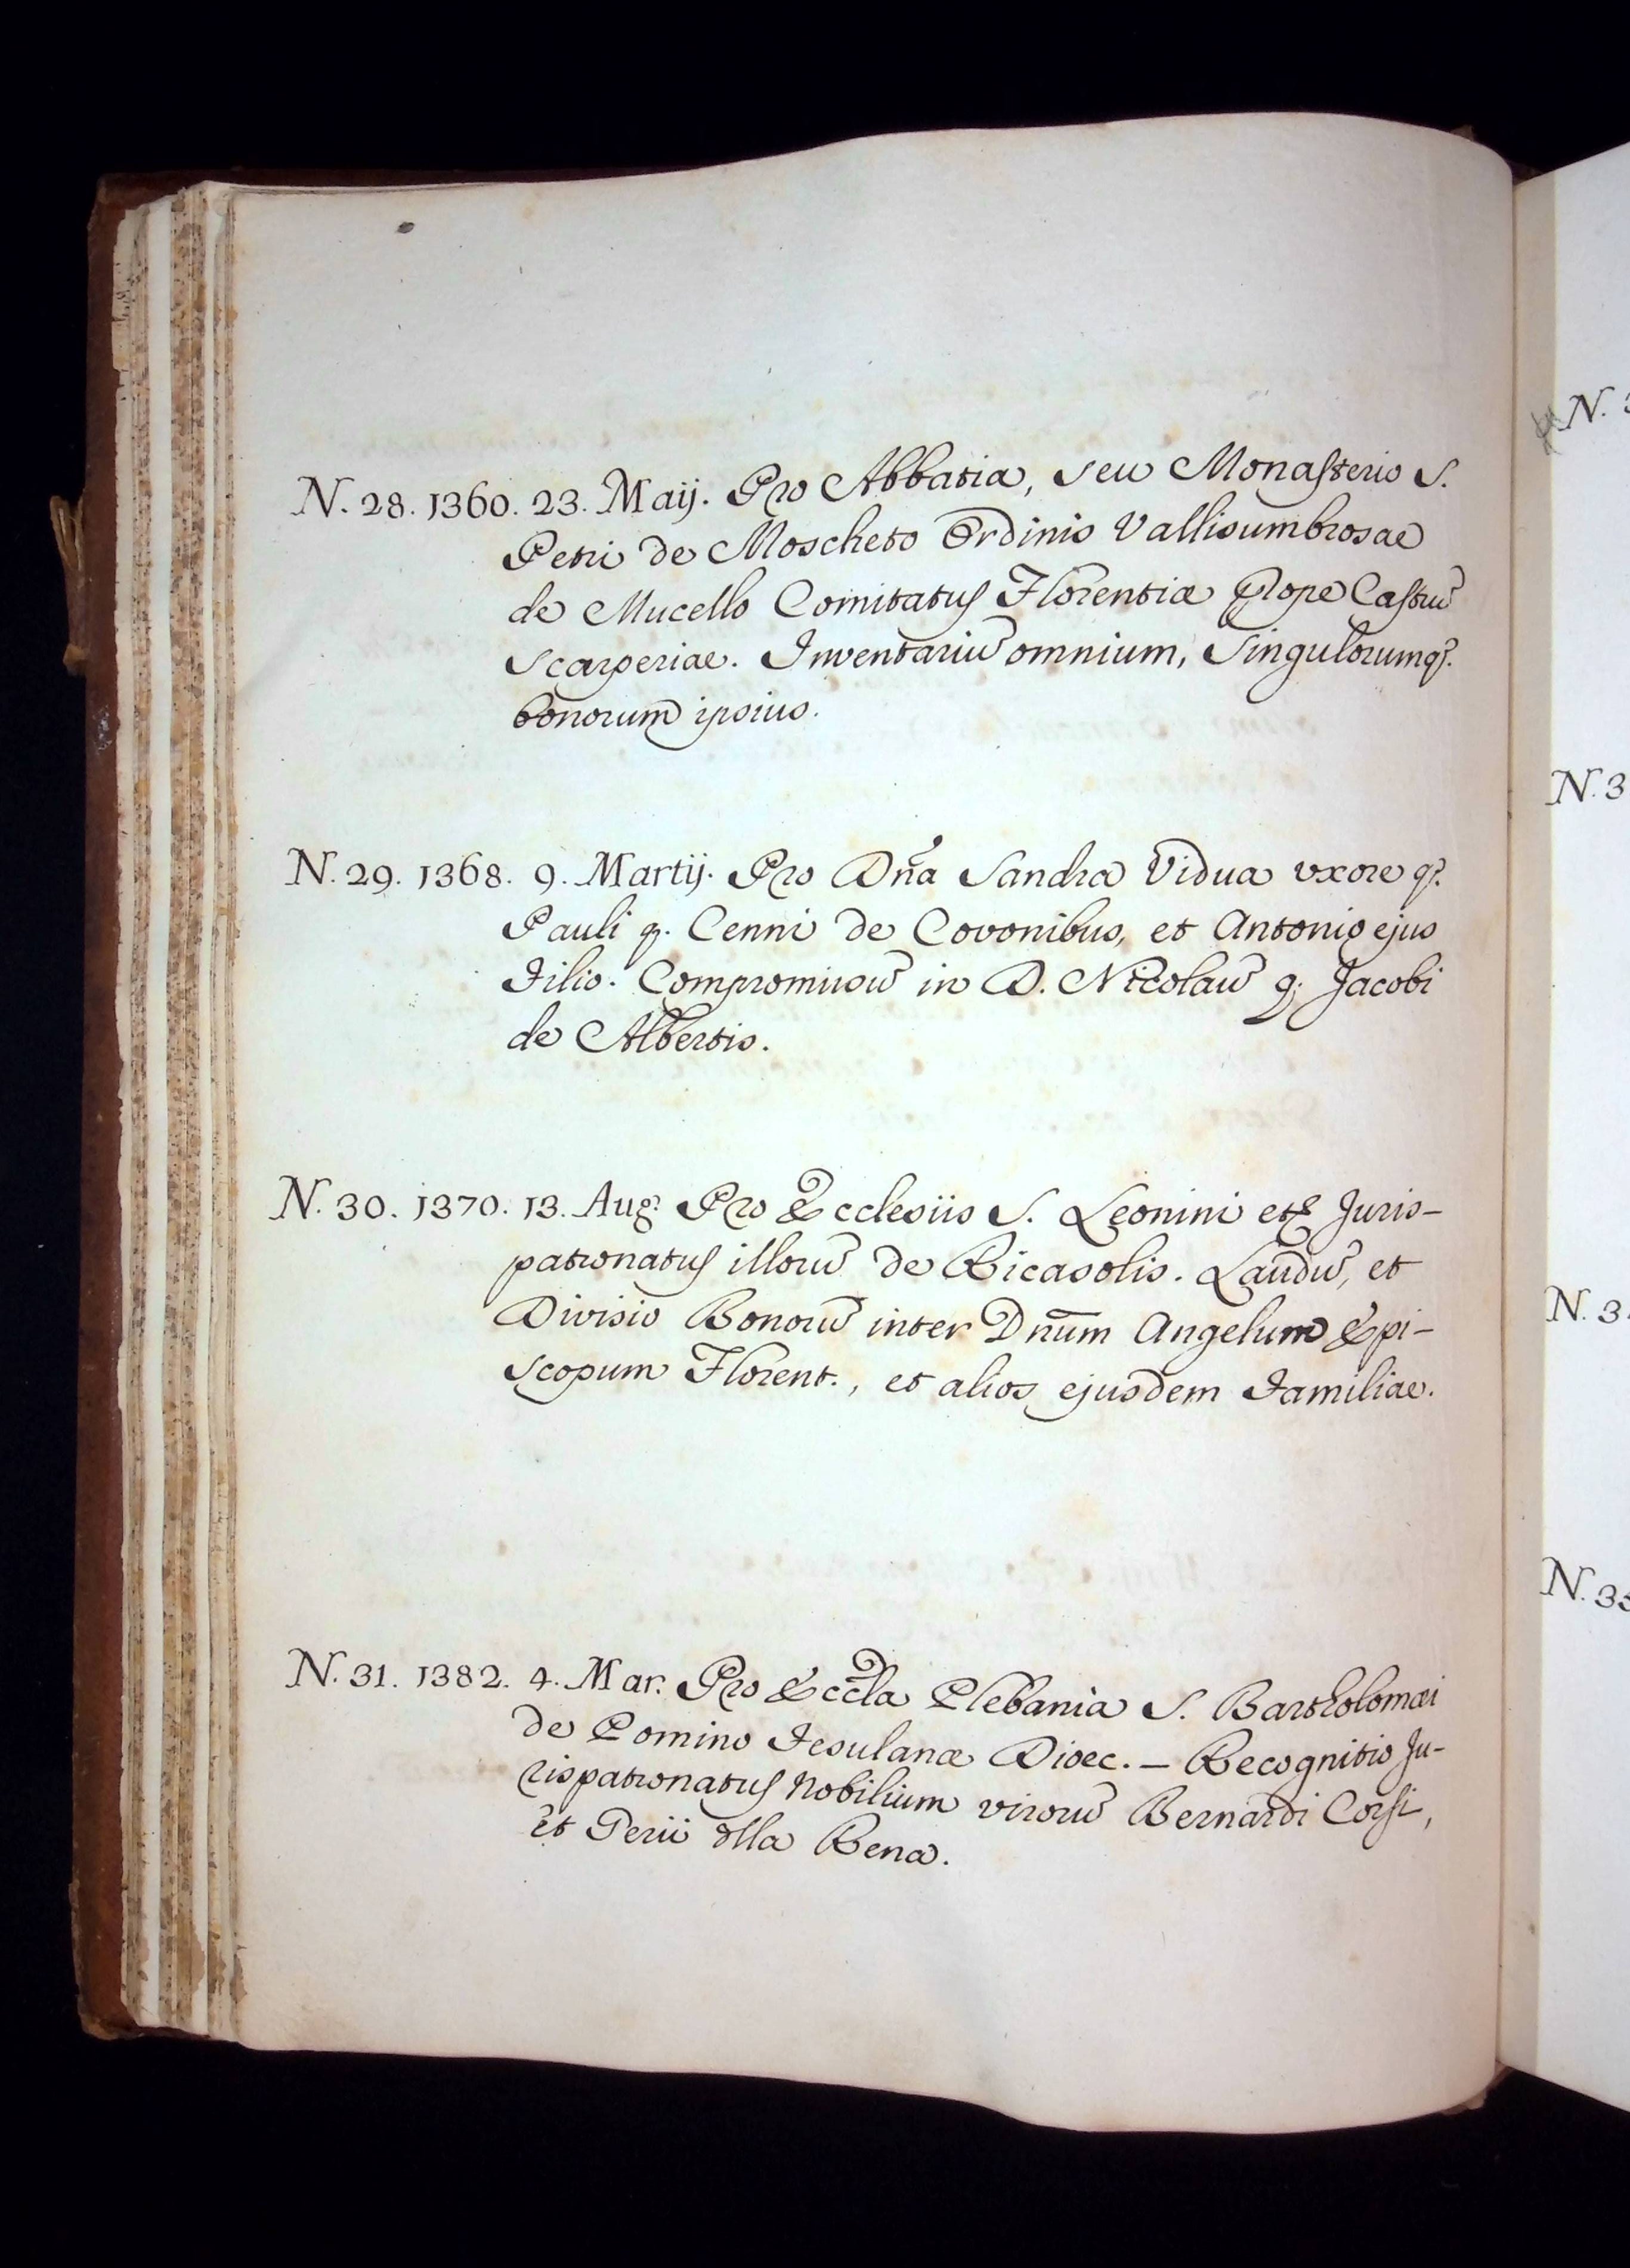 N. 28. 1360. 23. Maij. Pro Abbatia, seu Monasterio S.
Petri de Moscheto Ordinis Vallisumbrosae
de Mucello Comitatus Florentiæ prope Castrũ
Scarperiae. Inventariũ omnium, singulorumq̃.
bonorum ipsius.
N. 29. 1368. 9. Martij. Pro Dña Sandra Vidua uxore q.
Pauli q. Cenni de Covonibus, et Antonio ejus
Filio. Compromissũ in D. Nicolaũ q. Jacobi
de Albertis.
N. 30. 1370. 13. Aug. Pro Ecclesiis S. Leonini etc Juris-
patronatus illorũ de Ricasolis. Laudũ, et
Divisio Bonorũ inter Dnũm Angelum Epi-
scopum Florent., et alios ejusdem Familiae.
N. 31. 1382. 4. Mar. Pro Eccl̃a Plebania S. Bartholomæi
de Pomino Fesulanæ Dioec. – Recognitio Ju-
rispatronatus Nobilium virorũ Bernardi Corsi,
et Perii dlla Rena.
N. 3
N. 3
N. 3
N. 35